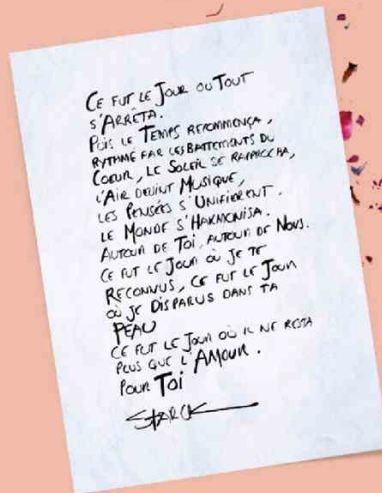 CE FUT LE JOUR OU TOUT
S'ARRÊTA.
PUIS LE TEMPS RECOMMENÇA,
RYTHMÉ PAR LES BATTEMENTS DU
COEUR, LE SOLEIL SE RAPPROCHA,
L'AIR DEVINT MUSIQUE,
LES PENSÉES S'UNIFIERENT.
LE MONDE S'HARMONISA.
AUTOUR DE TOI, AUTOUR DE NOUS.
CE FUT LE JOUR OÙ JE TE
RECONNUS, CE FUT LE JOUR
OÙ JE DISPARUS DANS TA
PEAU
CE FUT LE JOUR OÙ IL NE RESTA
PLUS QUE L'AMOUR.
POUR TOI
STARCK